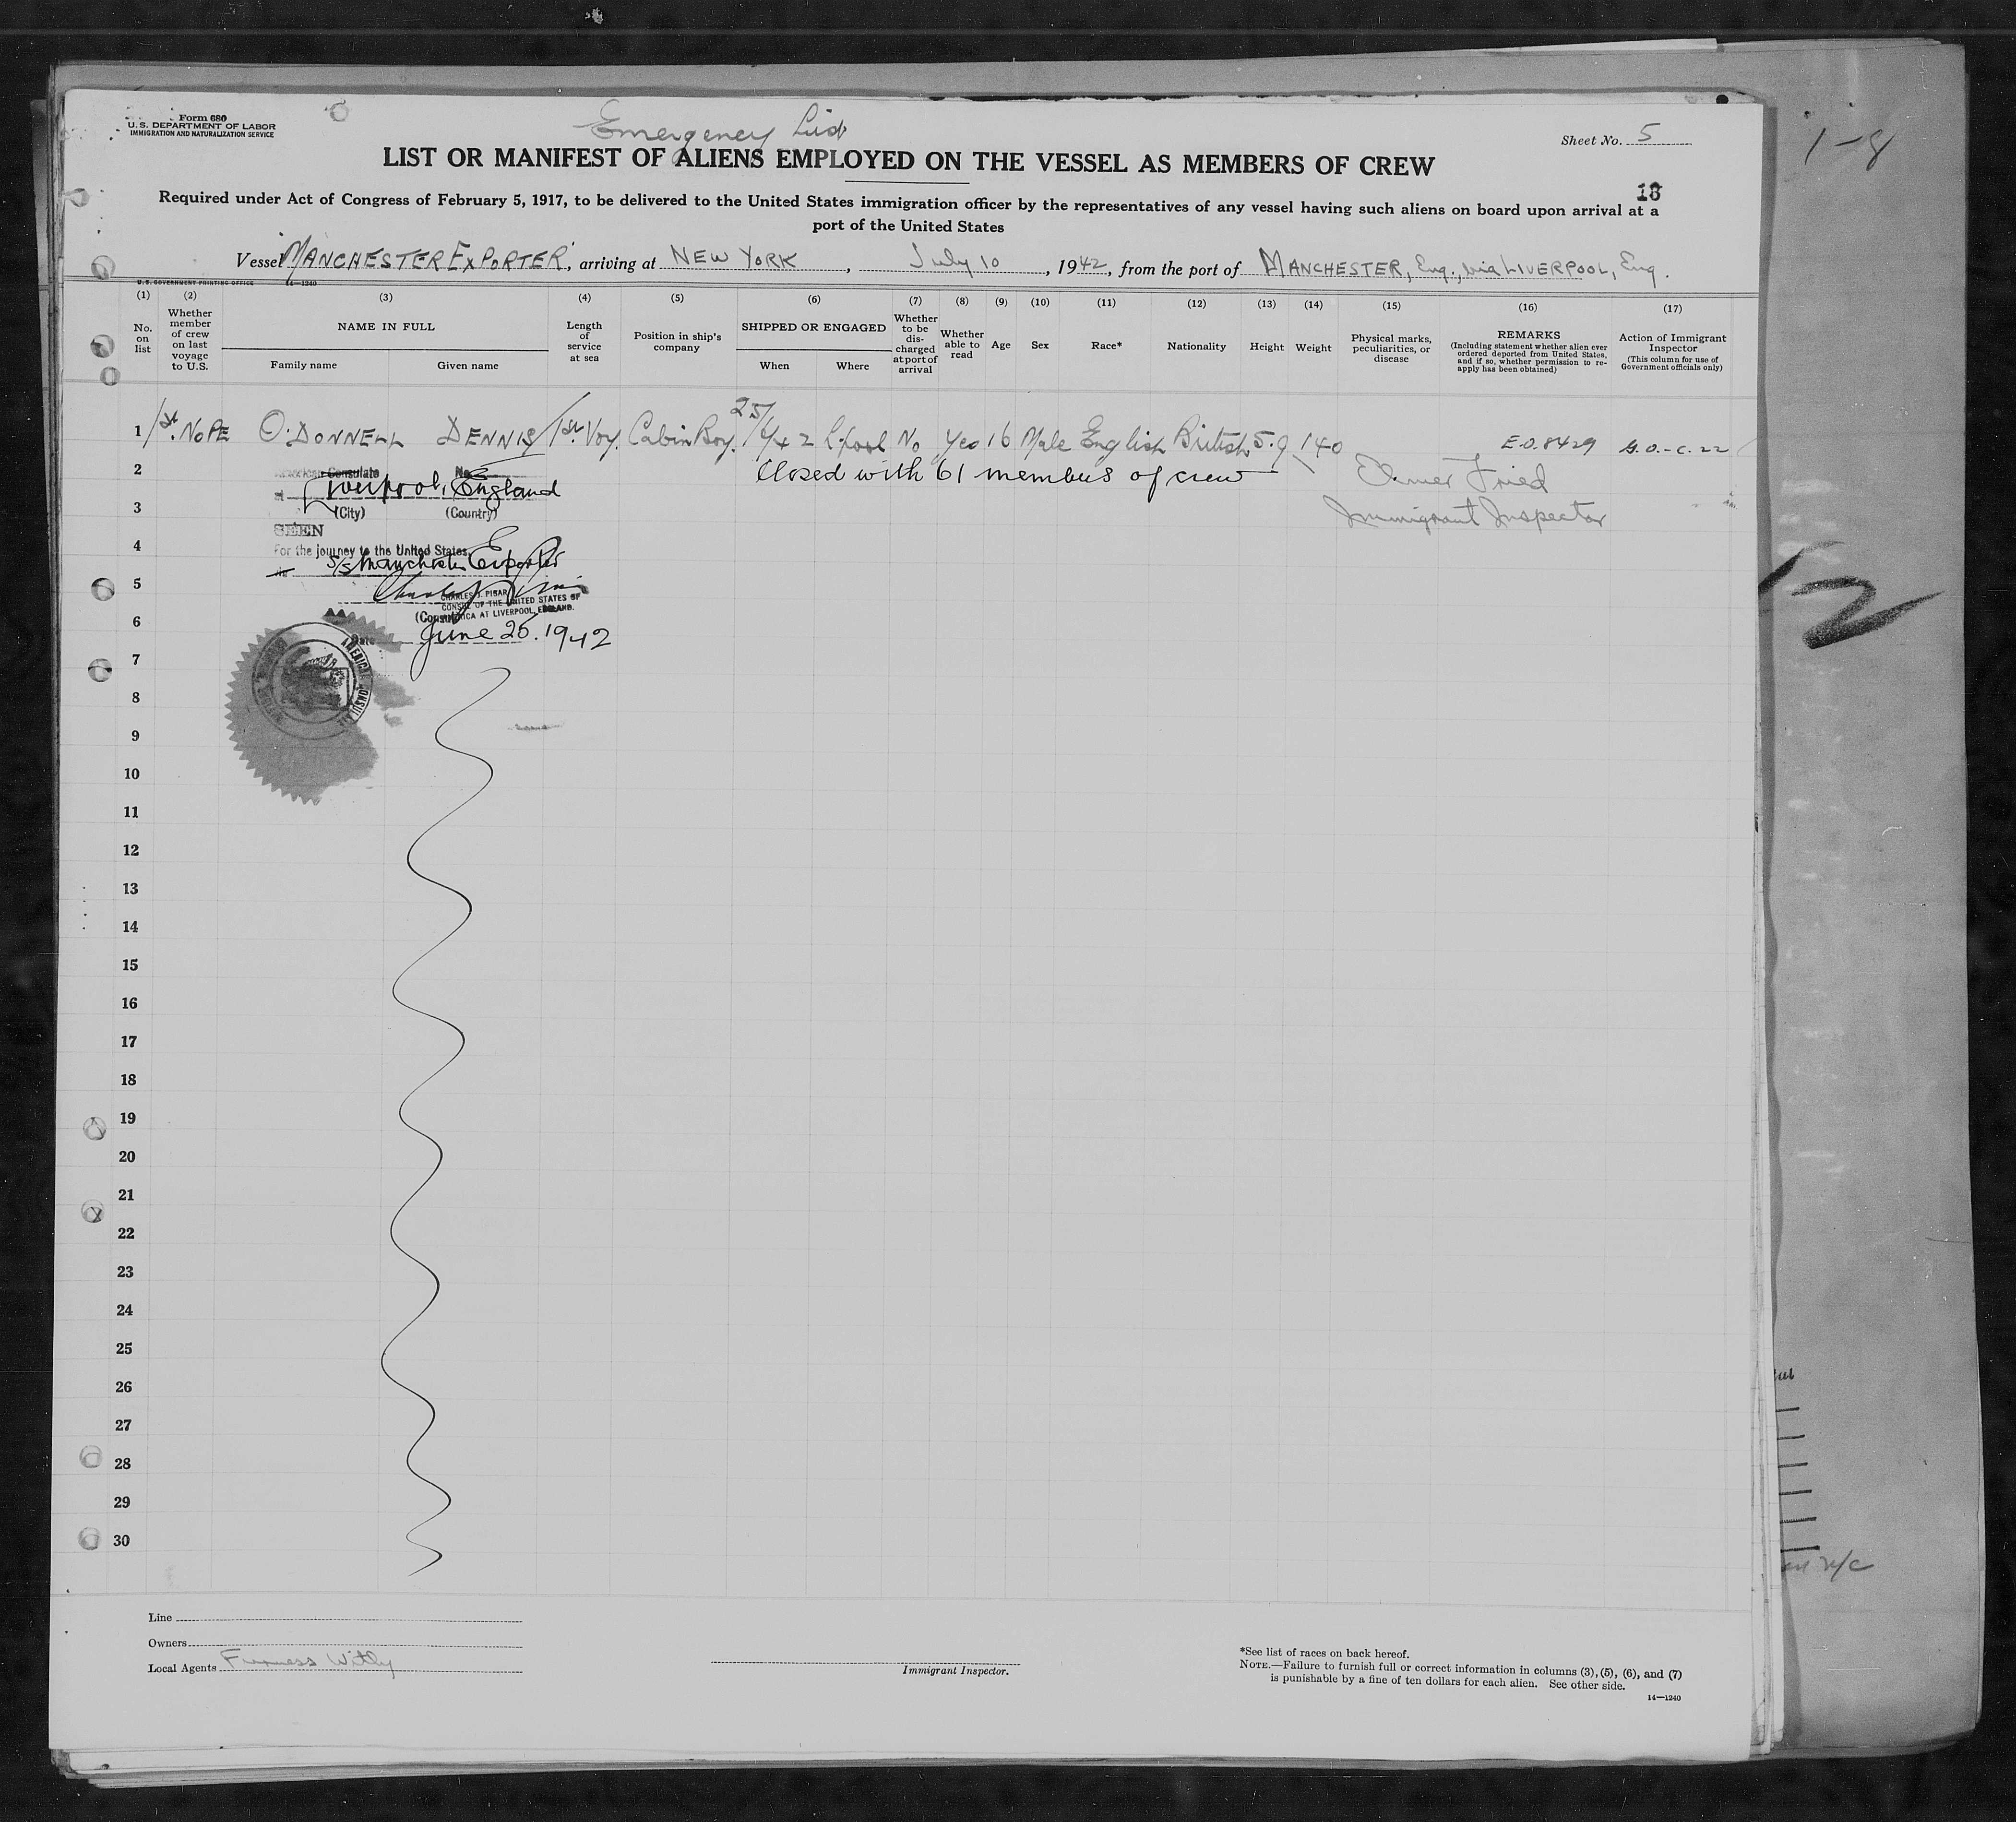 Form 680
U.S. DEPARTMENT OF LABOR
IMMIGRATION AND NATURALIZATION SERVICE
Emergency List
Sheet No. 5
1-8
LIST OR MANIFEST OF ALIENS EMPLOYED ON THE VESSEL AS MEMBERS OF CREW
18
Required under Act of Congress of February 5, 1917, to be delivered to the United States immigration officer by the representatives of any vessel having such aliens on board upon arrival at a
port of the United States
Vessel "MANCHESTER EXPORTER", arriving at NEW YORK, July 10, 1942, from the port of MANCHESTER, Eng., via LIVERPOOL, Eng.
U.S. GOVERNMENT PRINTING OFFICE 14—1240
(1) No. on list
(2) Whether member of crew on last voyage to U.S.
(3) NAME IN FULL
Family name
Given name
(4) Length of service at sea
(5) Position in ship's company
(6) SHIPPED OR ENGAGED
When
Where
(7) Whether to be discharged at port of arrival
(8) Whether able to read
(9) Age
(10) Sex
(11) Race*
(12) Nationality
(13) Height
(14) Weight
(15) Physical marks, peculiarities, or disease
(16) REMARKS
(Including statement whether alien ever ordered deported from United States, and if so, whether permission to reapply has been obtained)
(17) Action of Immigrant Inspector
(This column for use of Government officials only)
1 O'DONNELL DENNIS 1st Voy. Cabin Boy. 25/6/42 L'pool No Yes 16 Male English British 5.9 140 E.O. 8429 G.O.-C.22
2 American Consulate No.
Closed with 61 members of crew
Elmer Fried
at Liverpool, England
3 (City) (Country)
Immigrant Inspector
SEEN
4 For the journey to the United States,
S/S Manchester Exporter
5
CHARLES J. PISAR
CONSUL OF THE UNITED STATES OF
AMERICA AT LIVERPOOL, ENGLAND.
(Consul)
6
Date June 25. 1942
AMERICAN CONSULATE
7
8
9
10
11
12
13
14
15
16
17
18
19
20
21
22
23
24
25
26
27
28
29
30
Line
Owners
Local Agents Furness Withy
Immigrant Inspector.
*See list of races on back hereof.
NOTE.—Failure to furnish full or correct information in columns (3), (5), (6), and (7)
is punishable by a fine of ten dollars for each alien. See other side.
14—1240